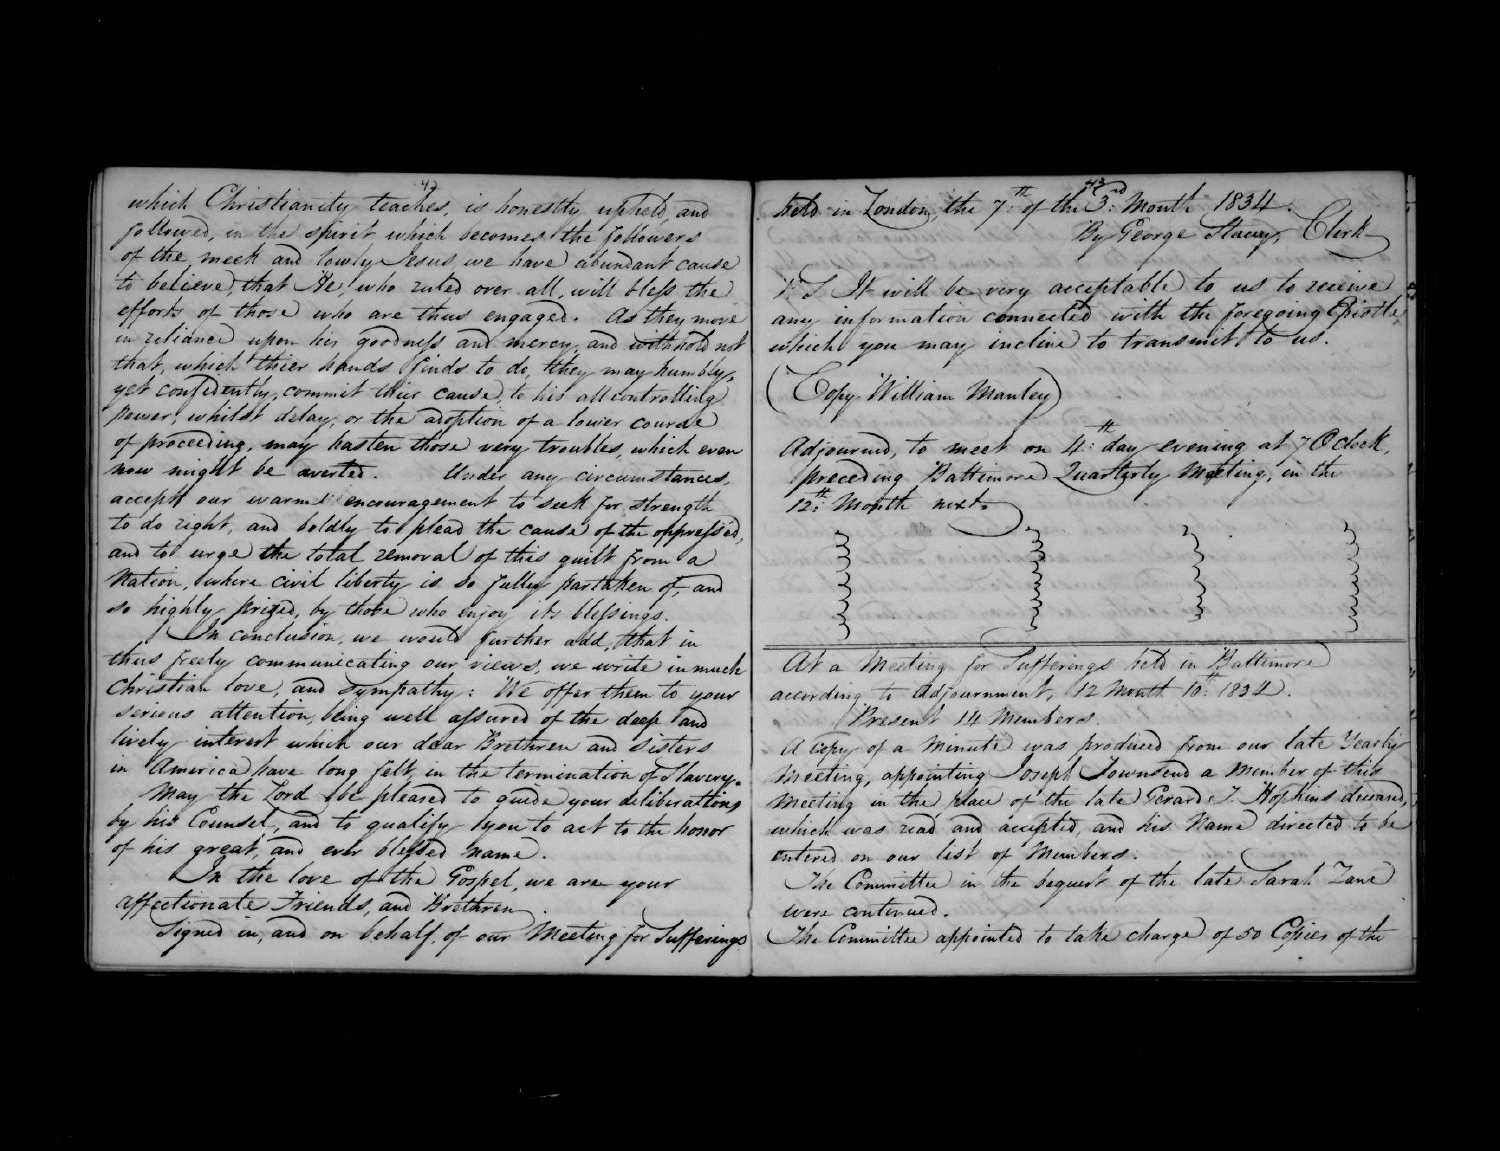 42
which Christianity teaches, is honestly upheld, and
followed, in the spirit which becomes the followers
of the meek and lowly Jesus, we have abundant cause
to believe, that He, who ruled over all, will bless the
efforts of those who are thus engaged. As they move
in reliance upon his goodness and mercy, and withhold not
that, which thier hands finds to do, they may humbly,
yet confidently, commit their cause, to his all controlling
power, whilst delay, or the adoption of a lower course
of proceeding, may hasten those very troubles, which even
now might be averted. Under any circumstances,
accept our warm encouragement to seek for strength
to do right, and boldly to plead the cause of the oppressed,
and to urge the total removal of this guilt from a
Nation, where civil liberty is so fully partaken of, and
so highly prized, by those who enjoy its blessings.
In conclusion, we would further add, that in
thus freely communicating our views, we write in much
Christian love, and sympathy: We offer them to your
serious attention, being well assured of the deep and
lively interest which our dear Brethren and Sisters
in America have long felt, in the termination of Slavery.
May the Lord be pleased to guide your deliberations
by his Counsel, and to qualify you to act to the honor
of his great, and ever blessed name.
In the love of the Gospel, we are your
affectionate Friends, and Brethren.
Signed in, and on behalf, of our Meeting for Sufferings
43
held in London, the 7th of the 3rd Month 1834.
By George Stacey, Clerk
P.S. It will be very acceptable to us to receive
any information connected with the foregoing Epistle,
which you may incline to transmit to us.
(Copy William Manley)
Adjourned, to meet on 4th day evening at 7 O clock,
preceding Baltimore Quarterly Meeting, in the
12th Month next.
At a Meeting for Sufferings held in Baltimore
according to adjournment, 12 Month 10th 1834.
Present 14 Members.
A Copy of a Minute was produced from our late Yearly
Meeting, appointing Joseph Townsend a Member of this
Meeting in the place of the late Gerard T. Hopkins deceased,
which was read and accepted, and his Name directed to be
entered on our list of Members.
The Committee in the bequest of the late Sarah Zane
were continued.
The Committee appointed to take charge of 50 Copies of the